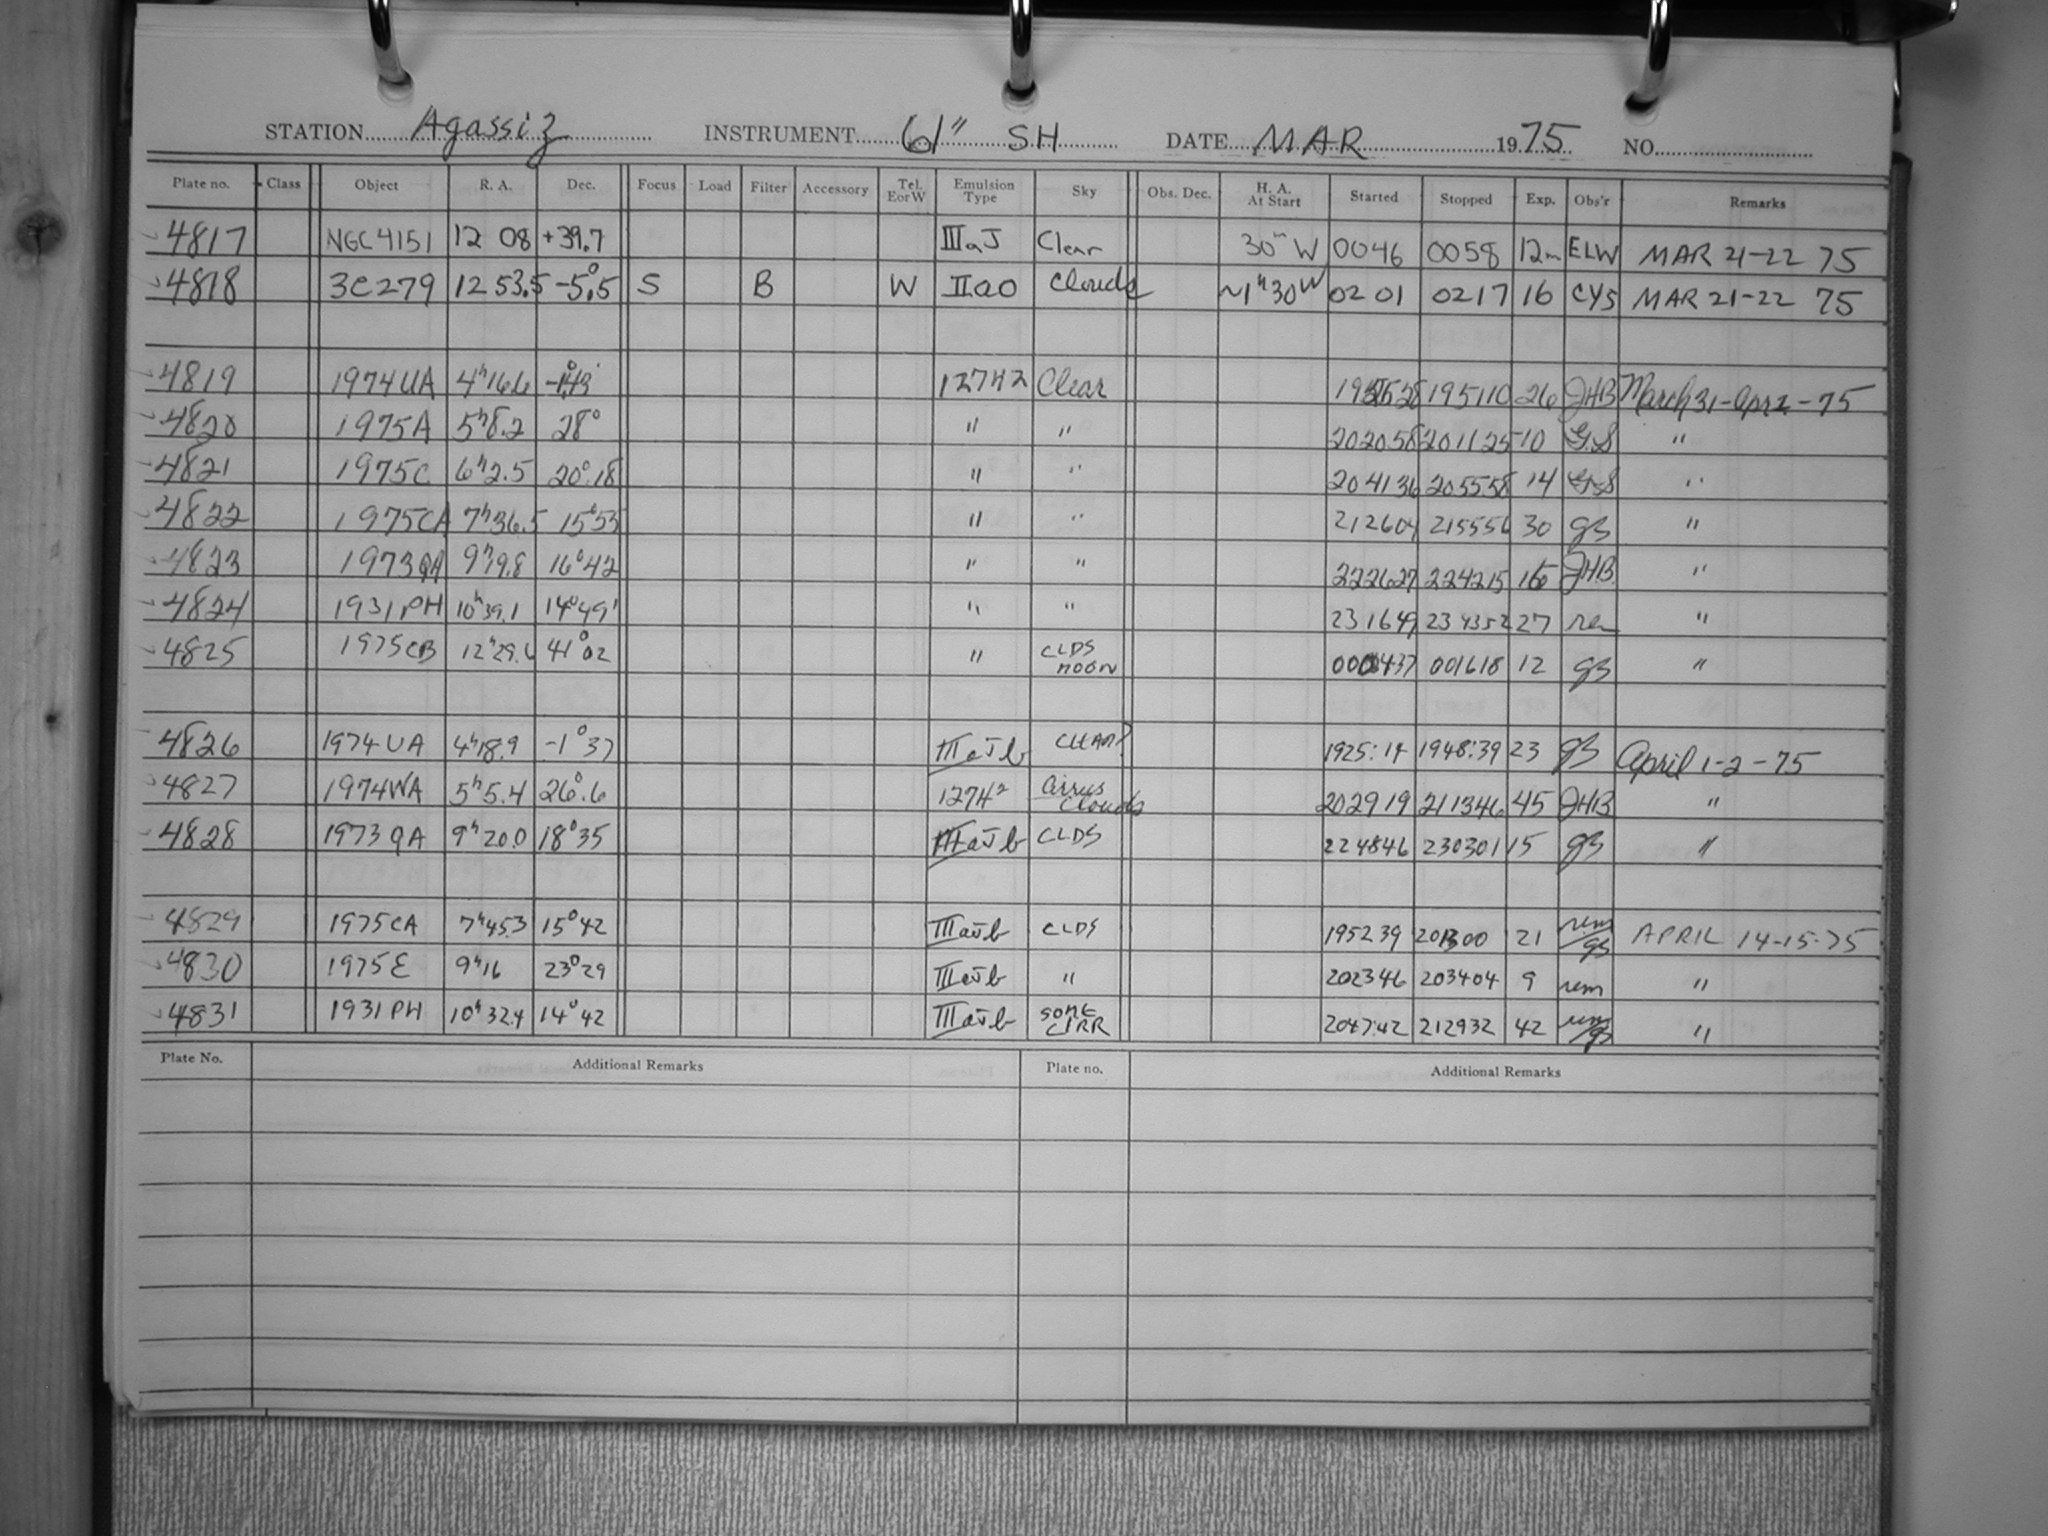 STATION Agassiz INSTRUMENT 61" SH DATE MAR 1975 NO.
Plate no. Class Object R. A. Dec. Focus Load Filter Accessory Tel. EorW Emulsion Type Sky Obs. Dec. H. A. At Start Started Stopped Exp. Obs'r Remarks
4817 NGC4151 12 08 +39.7 IIIaJ Clear 30m W 0046 0058 12m ELW MAR 21-22 75
4818 3C279 12 53.5 -5°.5 S B W IIaO Clouds ~1h30W 0201 0217 16 CYS MAR 21-22 75
4819 1974UA 4h16.6 12742 Clear 195110 26 JHB March 31-Apr 1-75
4820 1975A 5h8.2 28° " " 202058 201125 10 G.S "
4821 1975C 6h2.5 20°.18 " " 204136 205558 14 GS "
4822 1975CA 7h36.5 15°53 " " 212604 215556 30 gs "
4823 1973QA 9h9.8 16°42 " " 222627 224215 16 JHB "
4824 1931PH 10h39.1 14°49' " " 231649 234352 27 rem "
4825 1975CB 12h29.6 41°02 " CLDS moon 000437 001618 12 gs "
4826 1974UA 4h18.9 -1°37 IIIaJb CLEAR? 1925:14 1948:39 23 gs April 1-2-75
4827 1974WA 5h5.4 26°.6 12742 Cirrus Clouds 202919 211346 45 JHB "
4828 1973QA 9h20.0 18°35 IIIaJb CLDS 224846 230301 15 gs "
4829 1975CA 7h45.3 15°42 IIIaJb CLDS 195239 201300 21 rem/gs APRIL 14-15-75
4830 1975E 9h16 23°29 IIIaJb " 202346 203404 9 rem "
4831 1931PH 10h32.4 14°42 IIIaJb SOME CIRR 204742 212932 42 rem/gs "
Plate No. Additional Remarks Plate no. Additional Remarks